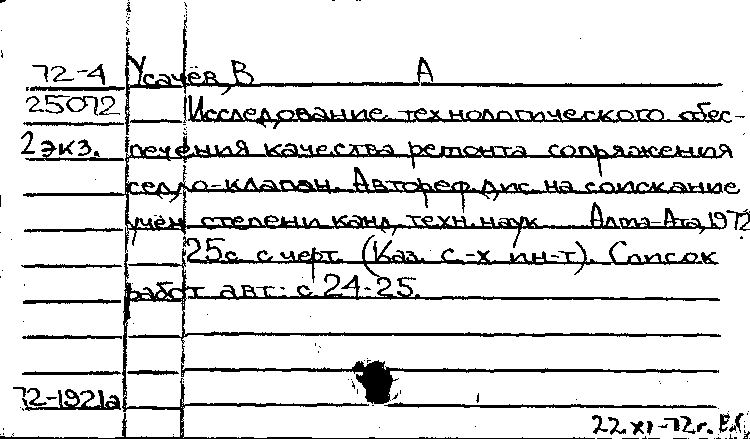 72-4 Усачёв, В А
25072 Исследование технологического обес-
2 экз. печения качества ремонта сопряжения
седло-клапан. Автореф. дис. на соискание
учён степени канд. техн. наук Алма-Ата, 1972
25с. с черт. (Каз. с.-х ин-т). Список
работ авт: с 24-25.
72-1921а
22.XI-72г. Е.С.